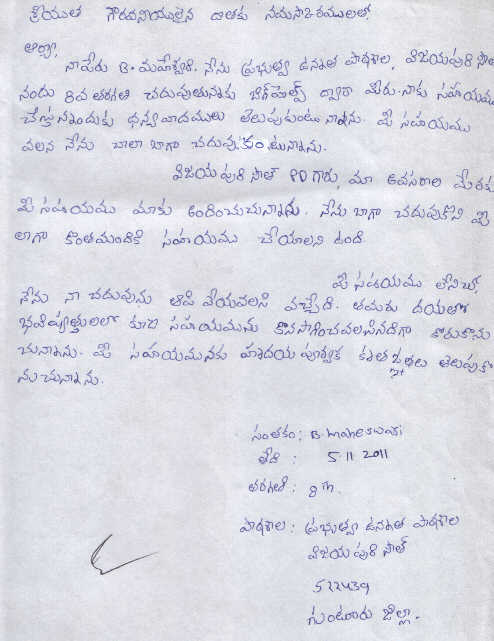 శ్రీయుత గౌరవనీయులైన దాతకు నమస్కారములతో,
ఆర్యా,
నాపేరు B. మహేశ్వరి. నేను ప్రభుత్వ ఉన్నత పాఠశాల, విజయపురి సౌత్
నందు 8వ తరగతి చదువుతున్నాను మీరు నాకు సహయము
చేస్తున్నందుకు ధన్యవాదములు తెలుపుకుంటున్నాను. మీ సహయము
వలన నేను చాలా బాగా చదువుకుంటున్నాను.
విజయ పురి సౌత్ PD గారు, మా అవసరాల మేరకు
మీ సహయము మాకు అందించుచున్నారు. నేను బాగా చదువుకొని మీ
లాగా కొంతమందికి సహయము చేయాలని ఉంది.
మీ సహయము లేనిచో,
నేను నా చదువును ఆపి వేయవలసి వచ్చేది. తమరు దయతో
భవిష్యత్తులో కూడా సహయమును కొనసాగించవలసినదిగా కోరుకొను
చున్నాను. మీ సహయమునకు హృదయ పూర్వక కృతజ్ఞతలు తెలుపుకొ
నుచున్నాను.
సంతకం: B. Maheswari
తేది : 5 11 2011
తరగతి : 8th.
పాఠశాల : ప్రభుత్వ ఉన్నత పాఠశాల
విజయ పురి సౌత్
522439
గుంటూరు జిల్లా.